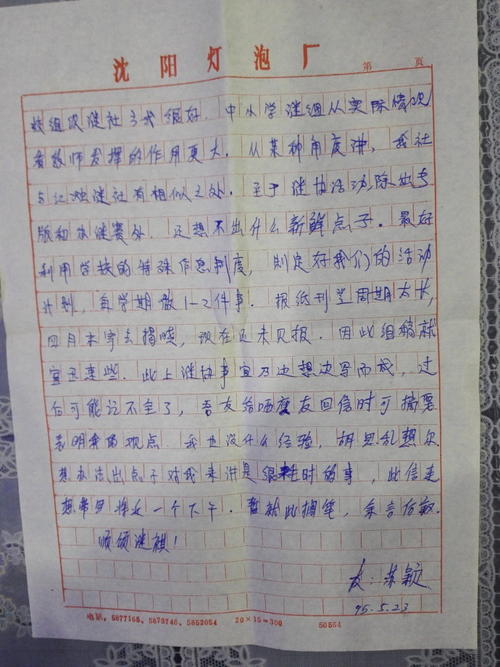 沈阳灯泡厂
第 页
校组织谜社方式很好。中小学谜组从实际情况
看教师发挥的作用更大。从某种角度讲，我社
与江浙谜社有相似之处。至于谜协活动除出专
版和办谜赛外，还想不出什么新鲜点子。最好
利用学校的特殊作息制度，制定好我们的活动
计划，每学期做1-2件事。报纸刊登周期太长，
四月本字去揭晓，现在还未见报。因此组稿就
宜迅速些。此上谜协事宜乃边想边写而成，过
后可能记不全了，吾友给晒厦友回信时可摘要
表明我的观点。我也没什么经验，胡思乱想尔
想办法出点子对我来讲是很耗时的事，此信连
想带写将近一个下午。暂就此搁笔，余言后叙。
顺颂谜祺！
友：苏颖
95.5.23
电话：5877165、5873746、5852054 20×15=300 50564